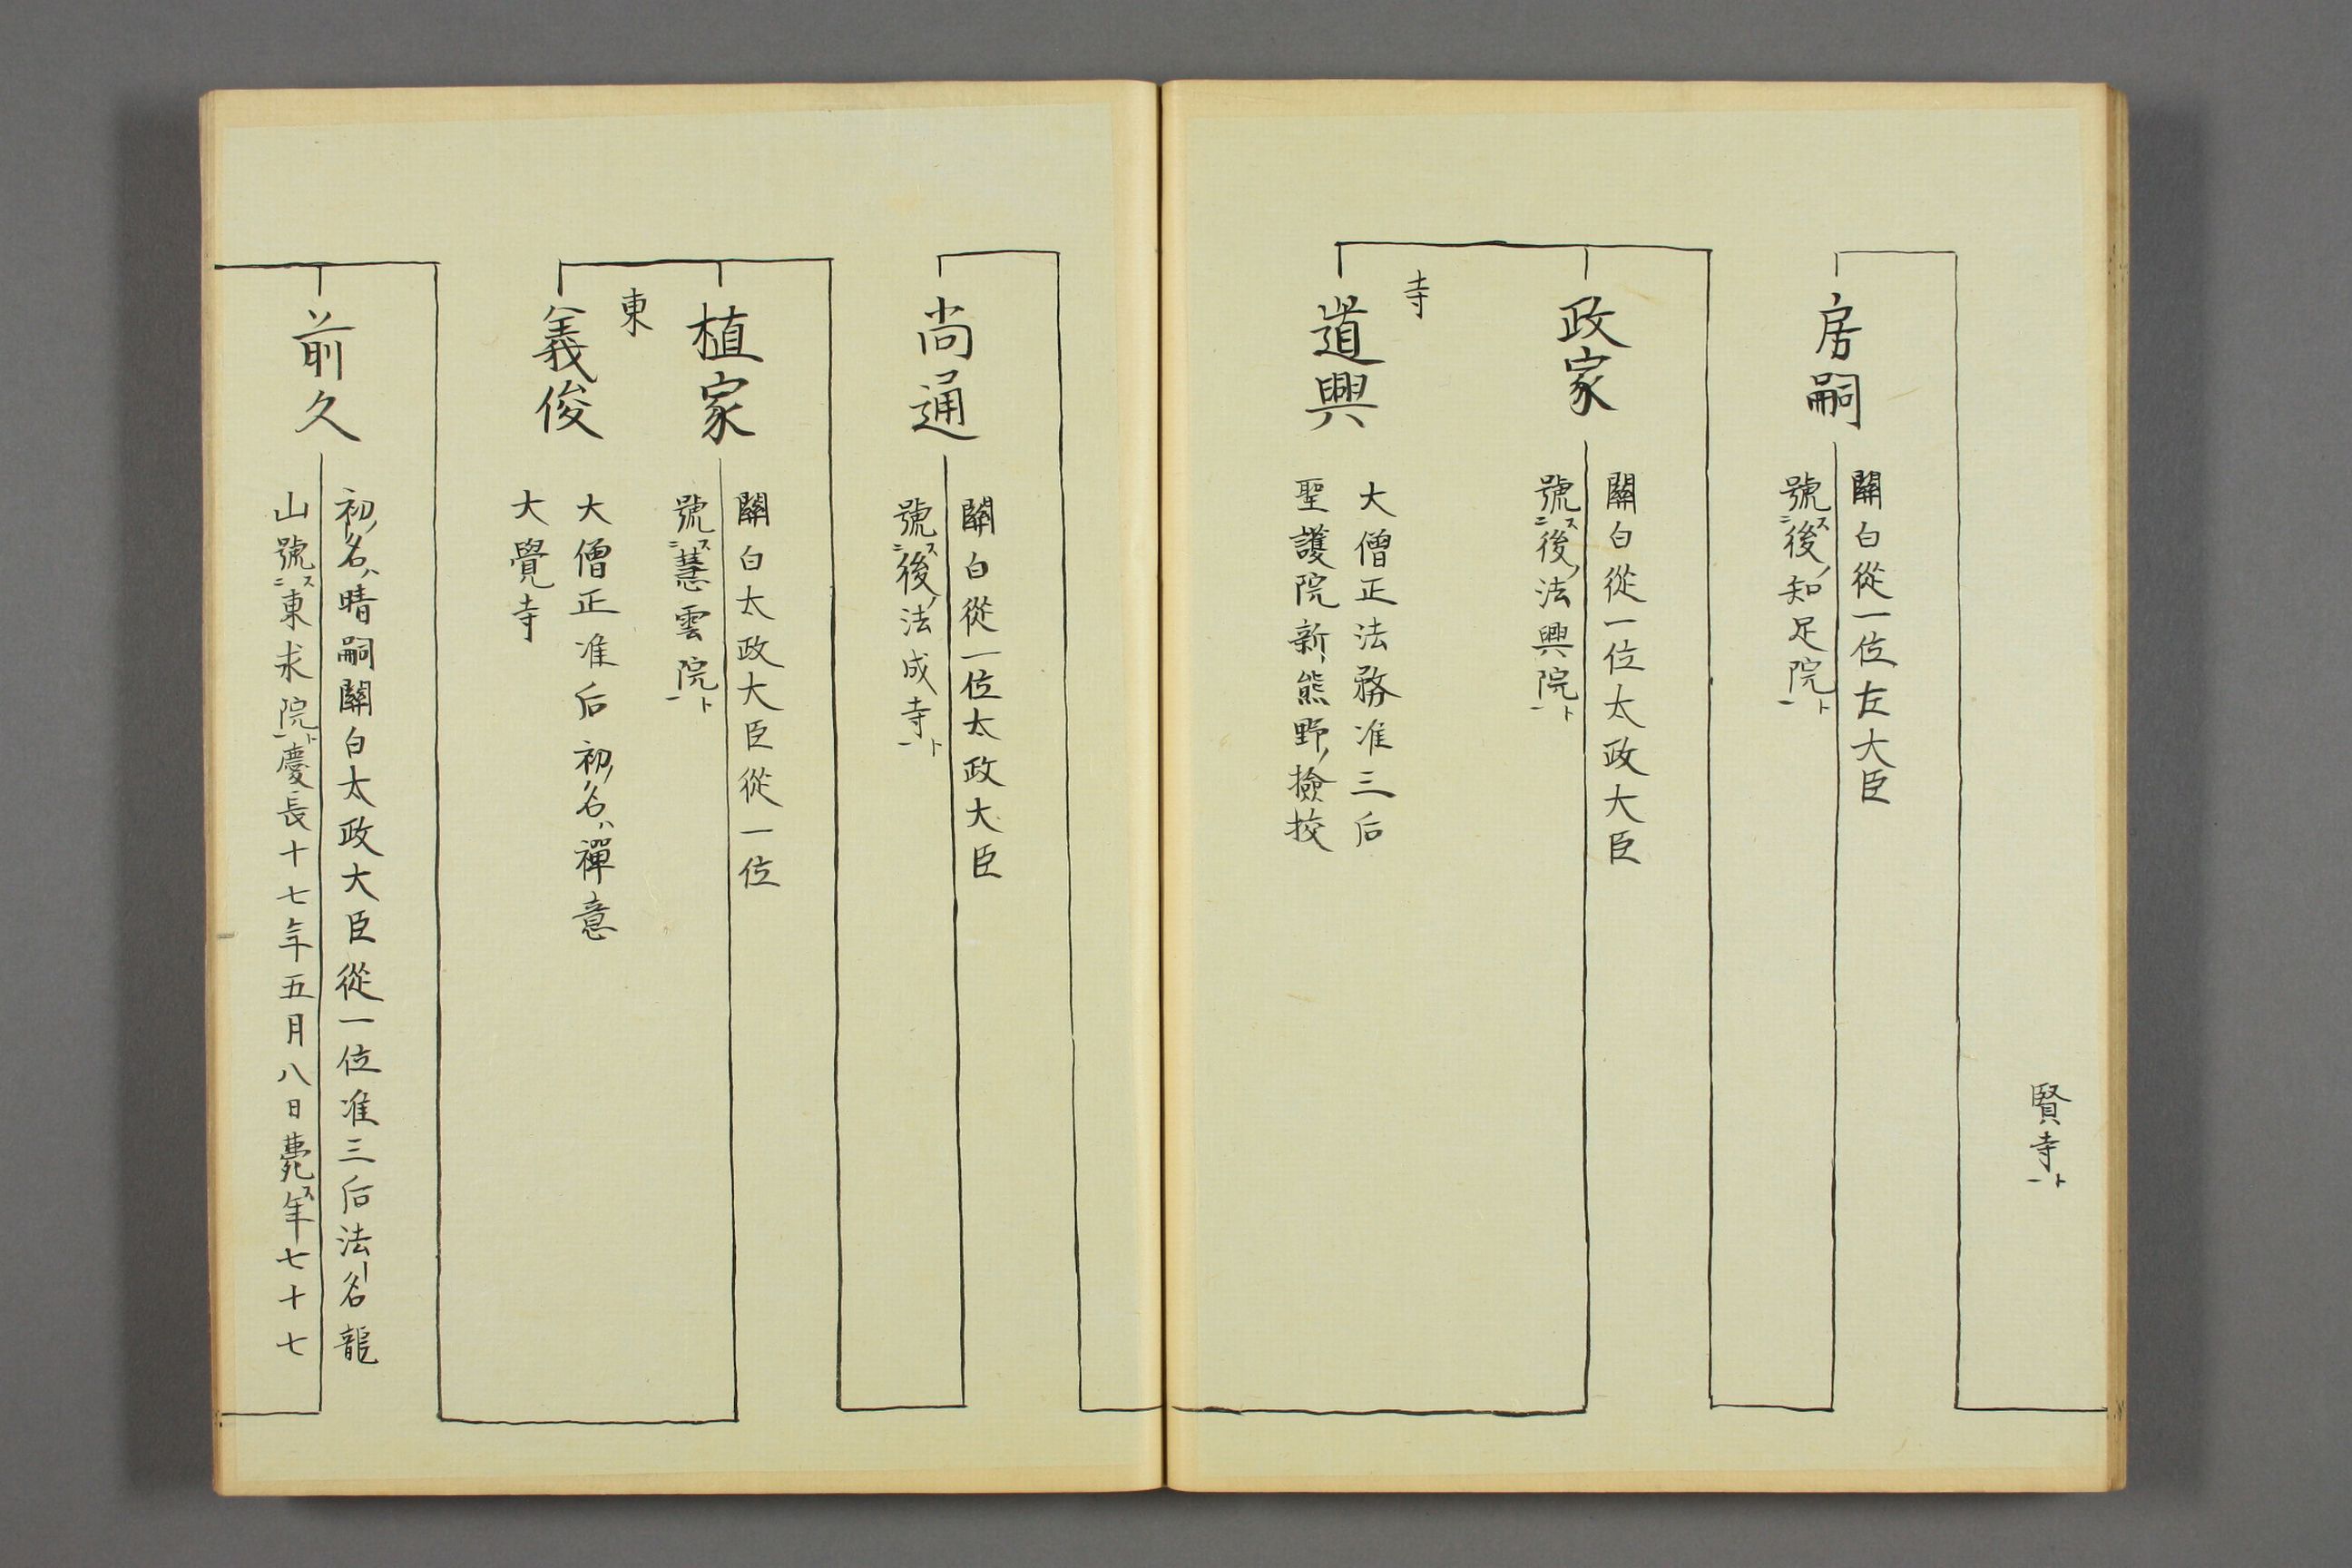 賢寺ト一
房嗣
關白從一位左大臣
號ス二後ノ知足院ト一
政家
關白從一位太政大臣
號ス二後ノ法興院ト一
寺
道興
大僧正法務准三后
聖護院新熊野ノ撿挍
尚通
關白從一位太政大臣
號ス二後ノ法成寺ト一
植家
關白太政大臣從一位
號ス二慧雲院ト一
東
義俊
大僧正准后初ノ名ハ禪意
大覺寺
前久
初ノ名ハ晴嗣關白太政大臣從一位准三后法名龍
山號ス二東求院ト一慶長十七年五月八日薨ス年七十七